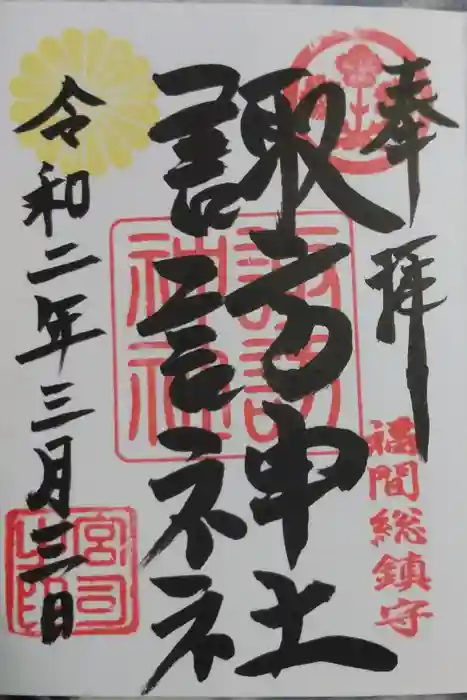 奉拝
福間総鎮守
諏訪神社
諏訪神社
令和二年三月三日
宮司之印